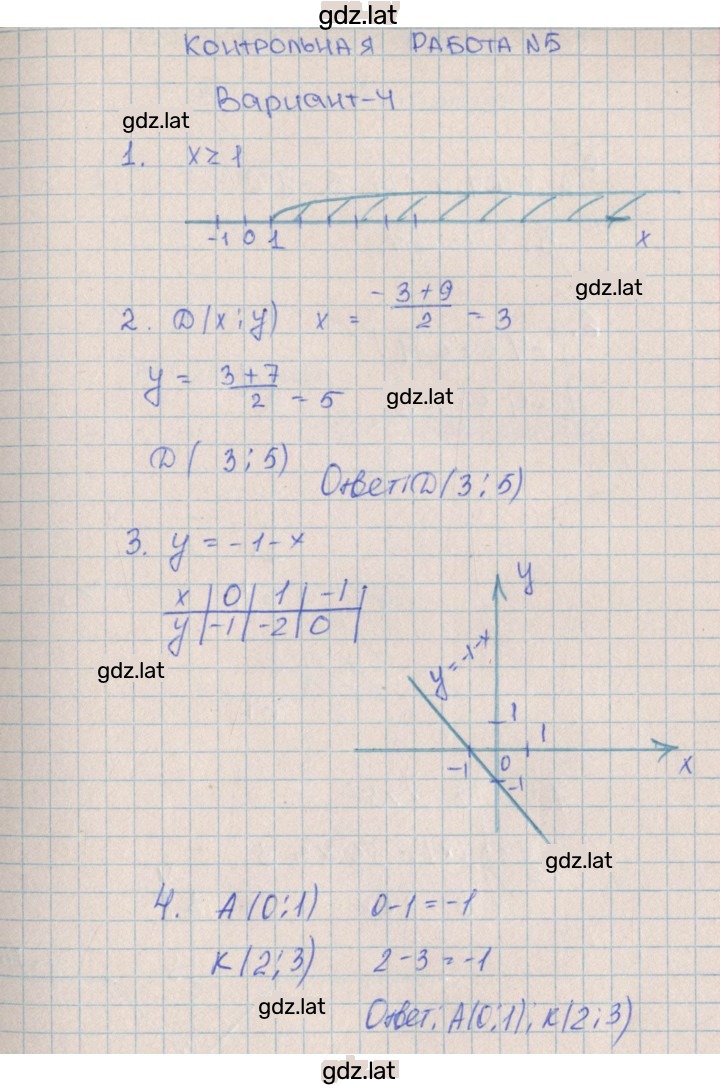 gdz.lat
КОНТРОЛЬНАЯ РАБОТА N5
Вариант-4
gdz.lat
1. x ≥ 1
-1 0 1 x
gdz.lat
2. D(x;y) x = -3+9/2 = 3
y = 3+7/2 = 5
gdz.lat
D(3;5)
Ответ: D(3;5)
3. y = -1-x
x | 0 | 1 | -1 |
y | -1 | -2 | 0 |
gdz.lat
y
y = -1-x
1
1
-1 0 x
-1
gdz.lat
4. A(0;1) 0-1=-1
K(2;3) 2-3=-1
gdz.lat
Ответ: A(0;1); K(2;3)
gdz.lat